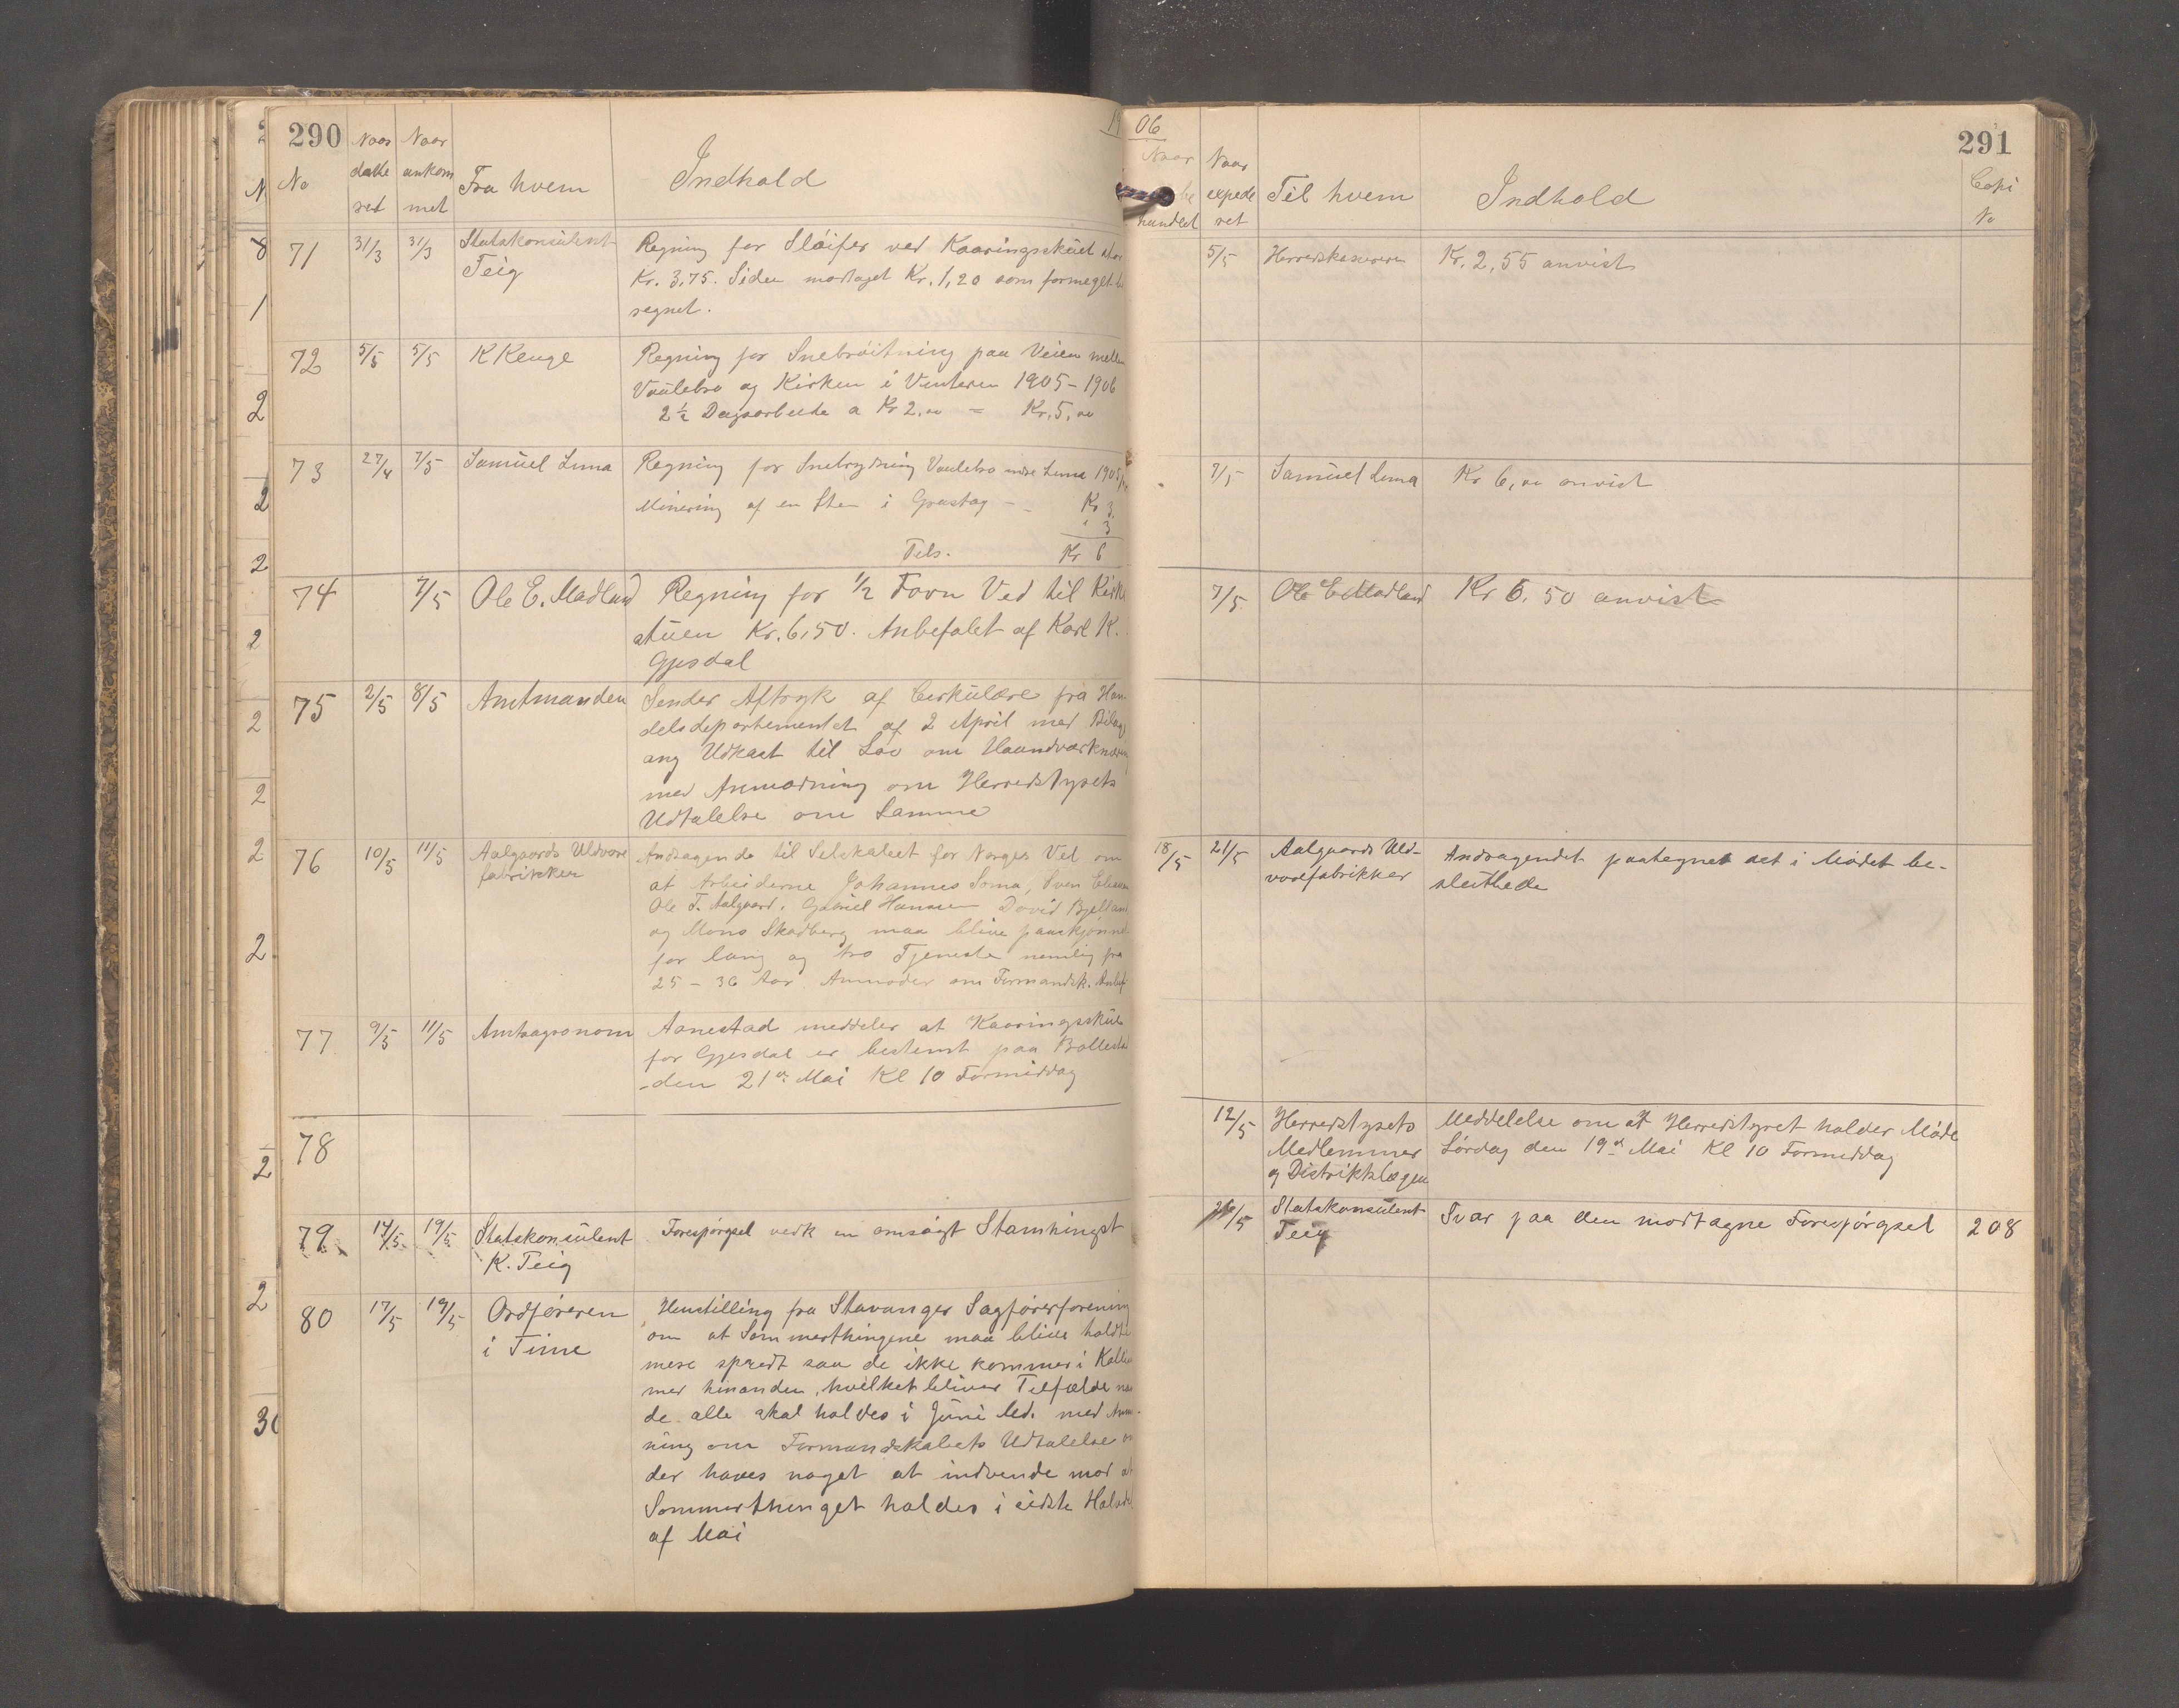 290
No
Naar datteret
Naar ankommet
Fra hvem
Indhold
19
71 31/3 31/3 Statskonsulent Teig
Regning for Sløifer ved Kaaringsskuet
Kr. 3,75. Siden modtaget Kr. 1,20 som formeget be
regnet.
72 5/5 5/5 K Kenge
Regning for Snebrøitning paa Veien mellem
Vaulebro og Kirken i Vinteren 1905-1906
2½ Dagsarbeide a Kr 2,00 = Kr. 5,00
73 27/4 7/5 Samuel Luna
Regning for Snebrydning Vaulebro Luna 1905
Minering af en Sten i Grustag - Kr 3
" 3
Tils. Kr 6
74 7/5 Ole E. Madland
Regning for 1/2 Favn Ved til Kirke
stuen Kr. 6,50. Anbefalet af Karl K.
Gjesdal
75 2/5 8/5 Amtmanden
Sender Aftryk af Cirkulære fra Han
delsdepartementet af 2 April med Bilag
ang Udkast til Lov om Haandværksnæring
med Anmodning om Herredstyrets
Udtalelse om Samme
76 10/5 11/5 Aalgaards Uldvare
fabrikker
Andragende til Selskabet for Norges Vel om
at Arbeiderne Johannes Soma, Sven
Ole T. Aalgaard, Gabriel Hansen David Bjelland
og Mons Skadberg maa blive paaskjønnet
for lang og tro Tjeneste nemlig fra
25 - 36 Aar. Anmoder om Formandsk. Anbef
77 9/5 11/5 Amtsagronom
Aanestad meddeler at Kaaringsskue
for Gjesdal er bestemt paa Bollestad
den 21de Mai Kl 10 Formiddag
78
79 14/5 19/5 Statskonsulent
K. Teig
Forespørgsel vedk en omsøgt Stamhingst
80 17/5 19/5 Ordføreren
i Time
Henstilling fra Stavanger Sagførerforening
om at Sommerthingene maa blive holdt
mere spredt saa de ikke kommer i Kollision
med hinanden, hvilket bliver Tilfælde naar
de alle skal holdes i Juni Md. med Anm-
ning om Formandskabets Udtalelse om
der haves noget at indvende mod at
Sommerthinget holdes i sidste Halvdel
af Mai
06
291
Naar behandlet
Naar expederet
Til hvem
Indhold
Copi No
5/5 Herredskasserer Kr. 2,55 anvist
7/5 Samuel Luna Kr 6,00 anvist
7/5 Ole E Madland Kr 6.50 anvist
18/5 21/5 Aalgaards Uld-
varefabrikker
Andragendet paategnet det i Mødet be-
sluttede
12/5 Herredstyrets
Medlemmer
og Distriktslægen
Meddelelse om at Herredstyret holder Møde
Lørdag den 19de Mai Kl 10 Formiddag
/5 Statskonsulent
Teig
Svar paa den modtagne Forespørgsel 208